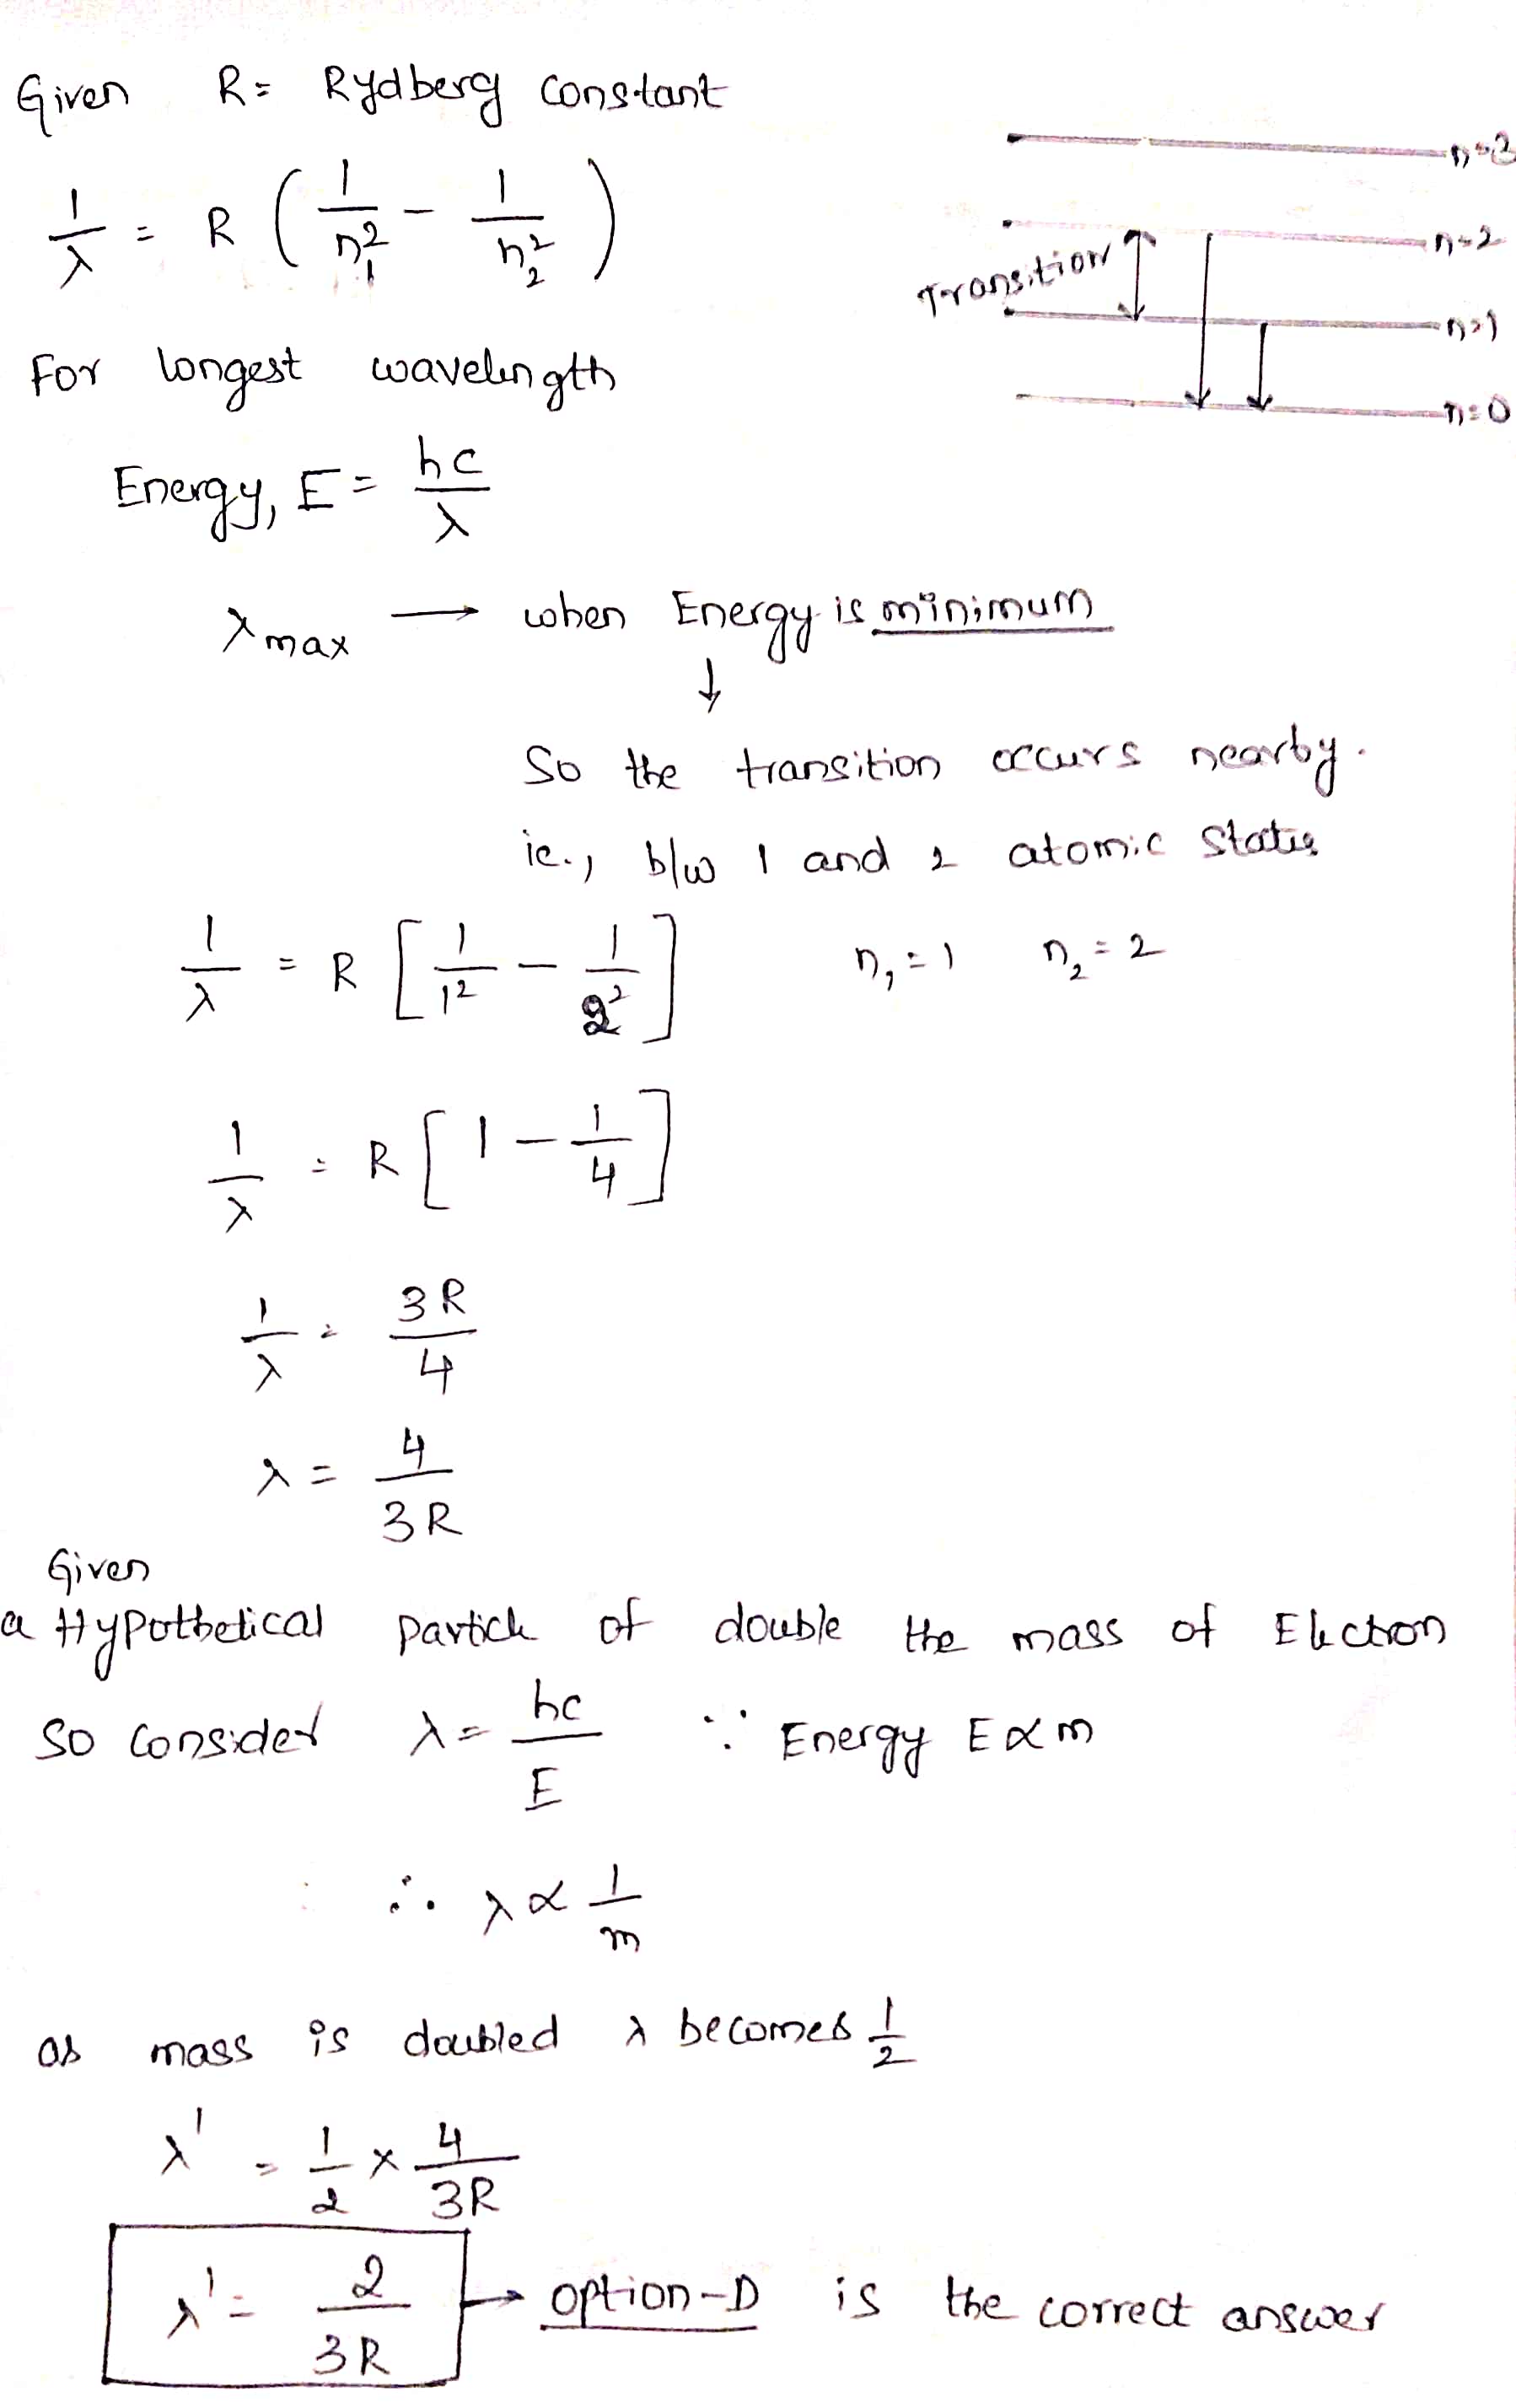 Given R = Rydberg constant
1/λ = R ( 1/n₁² - 1/n₂² )
n=3
n=2
Transition
n=1
n=0
For longest wavelength
Energy, E = hc/λ
λ max → when Energy is minimum
↓
So the transition occurs nearby.
ie., b/w 1 and 2 atomic states
1/λ = R [ 1/1² - 1/2² ] n₁ = 1 n₂ = 2
1/λ = R [ 1 - 1/4 ]
1/λ = 3R/4
λ = 4/3R
Given
a Hypothetical particle of double the mass of Electron
So consider λ = hc/E ∵ Energy E ∝ m
∴ λ ∝ 1/m
as mass is doubled λ becomes 1/2
λ' = 1/2 × 4/3R
λ' = 2/3R → option-D is the correct answer